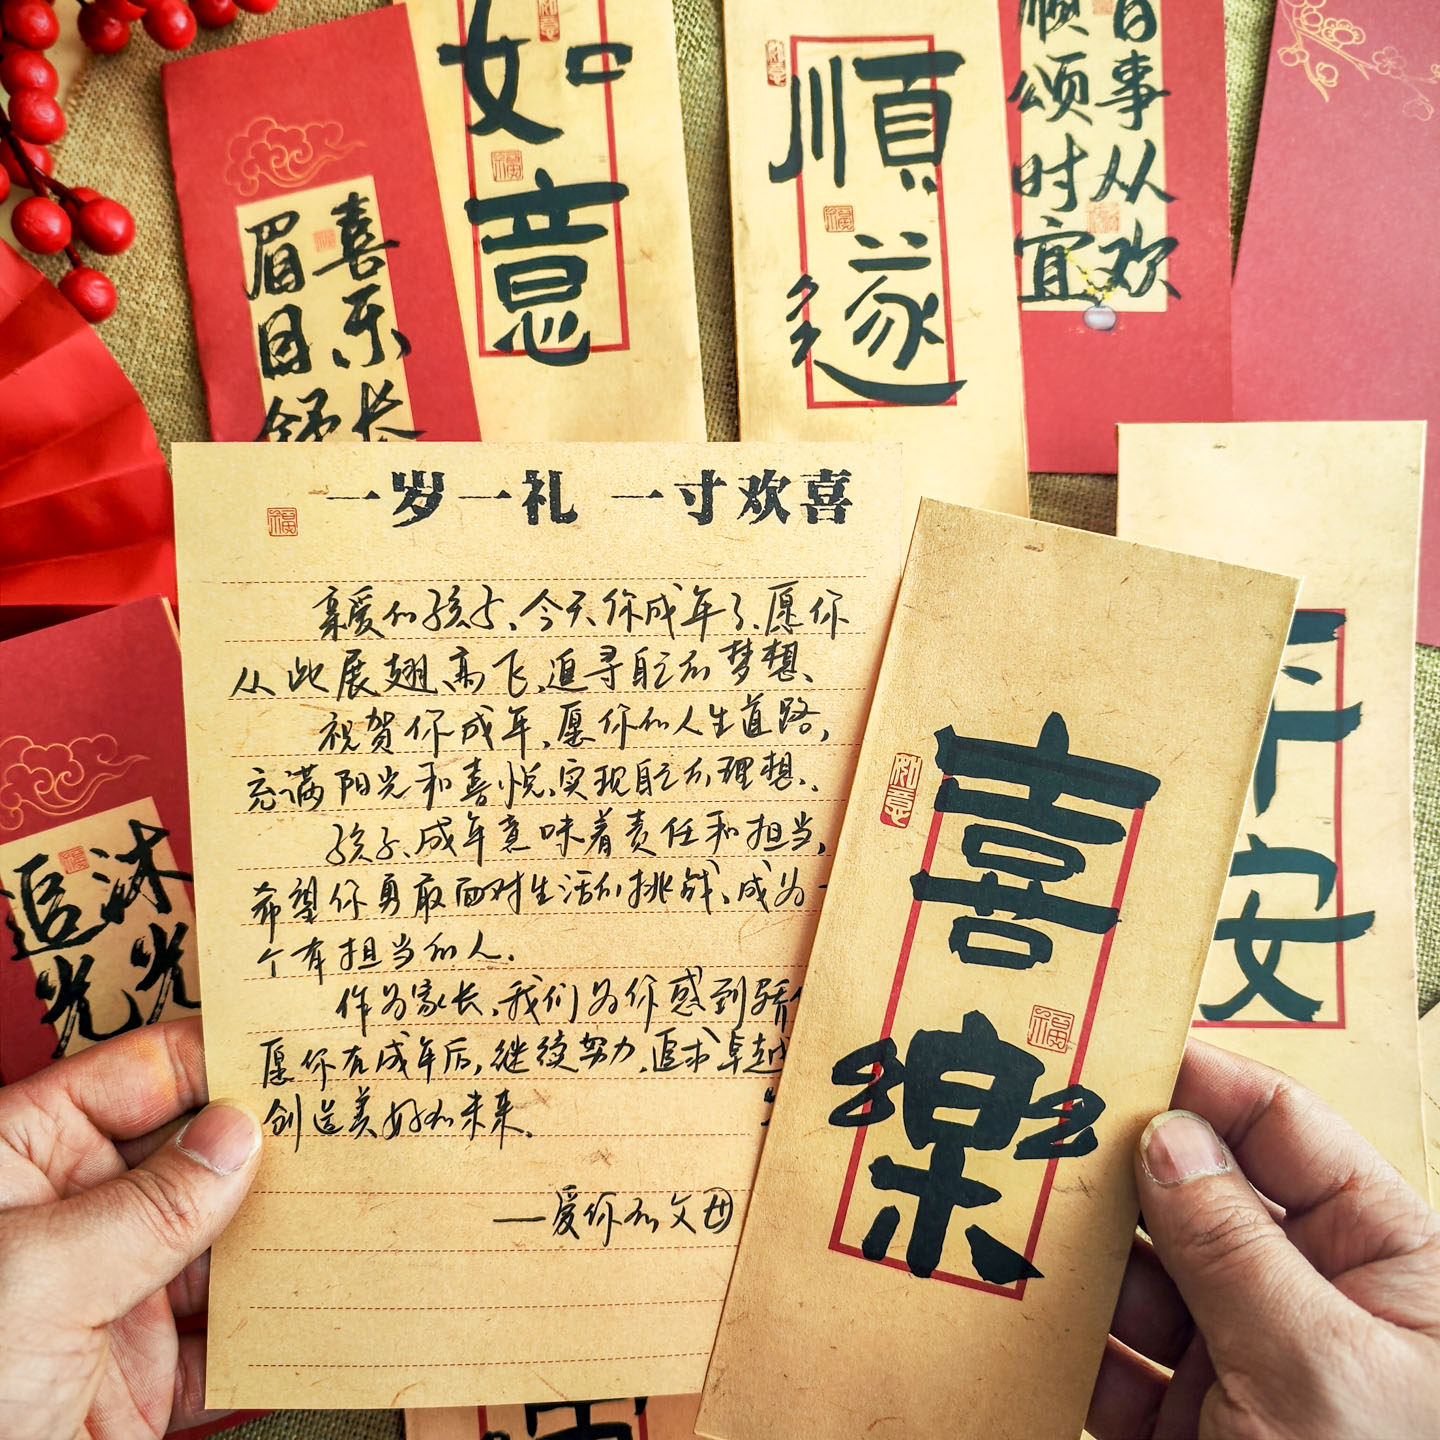 如意
福
如意
順遂
福
如意
事从欢
顺颂时宜
喜乐长
眉目舒
福
一岁一礼 一寸欢喜
福
亲爱的孩子、今天你成年了、愿你
从此展翅高飞、追寻自己的梦想、
祝贺你成年、愿你的人生道路,
充满阳光和喜悦、实现自己的理想、
孩子、成年意味着责任和担当、
希望你勇敢面对生活的挑战、成为一
个有担当的人.
作为家长、我们为你感到骄
愿你在成年后,继续努力、追求卓越
创造美好的未来、
——爱你的父母
如意
喜樂
福
平安
沐光
追光
福